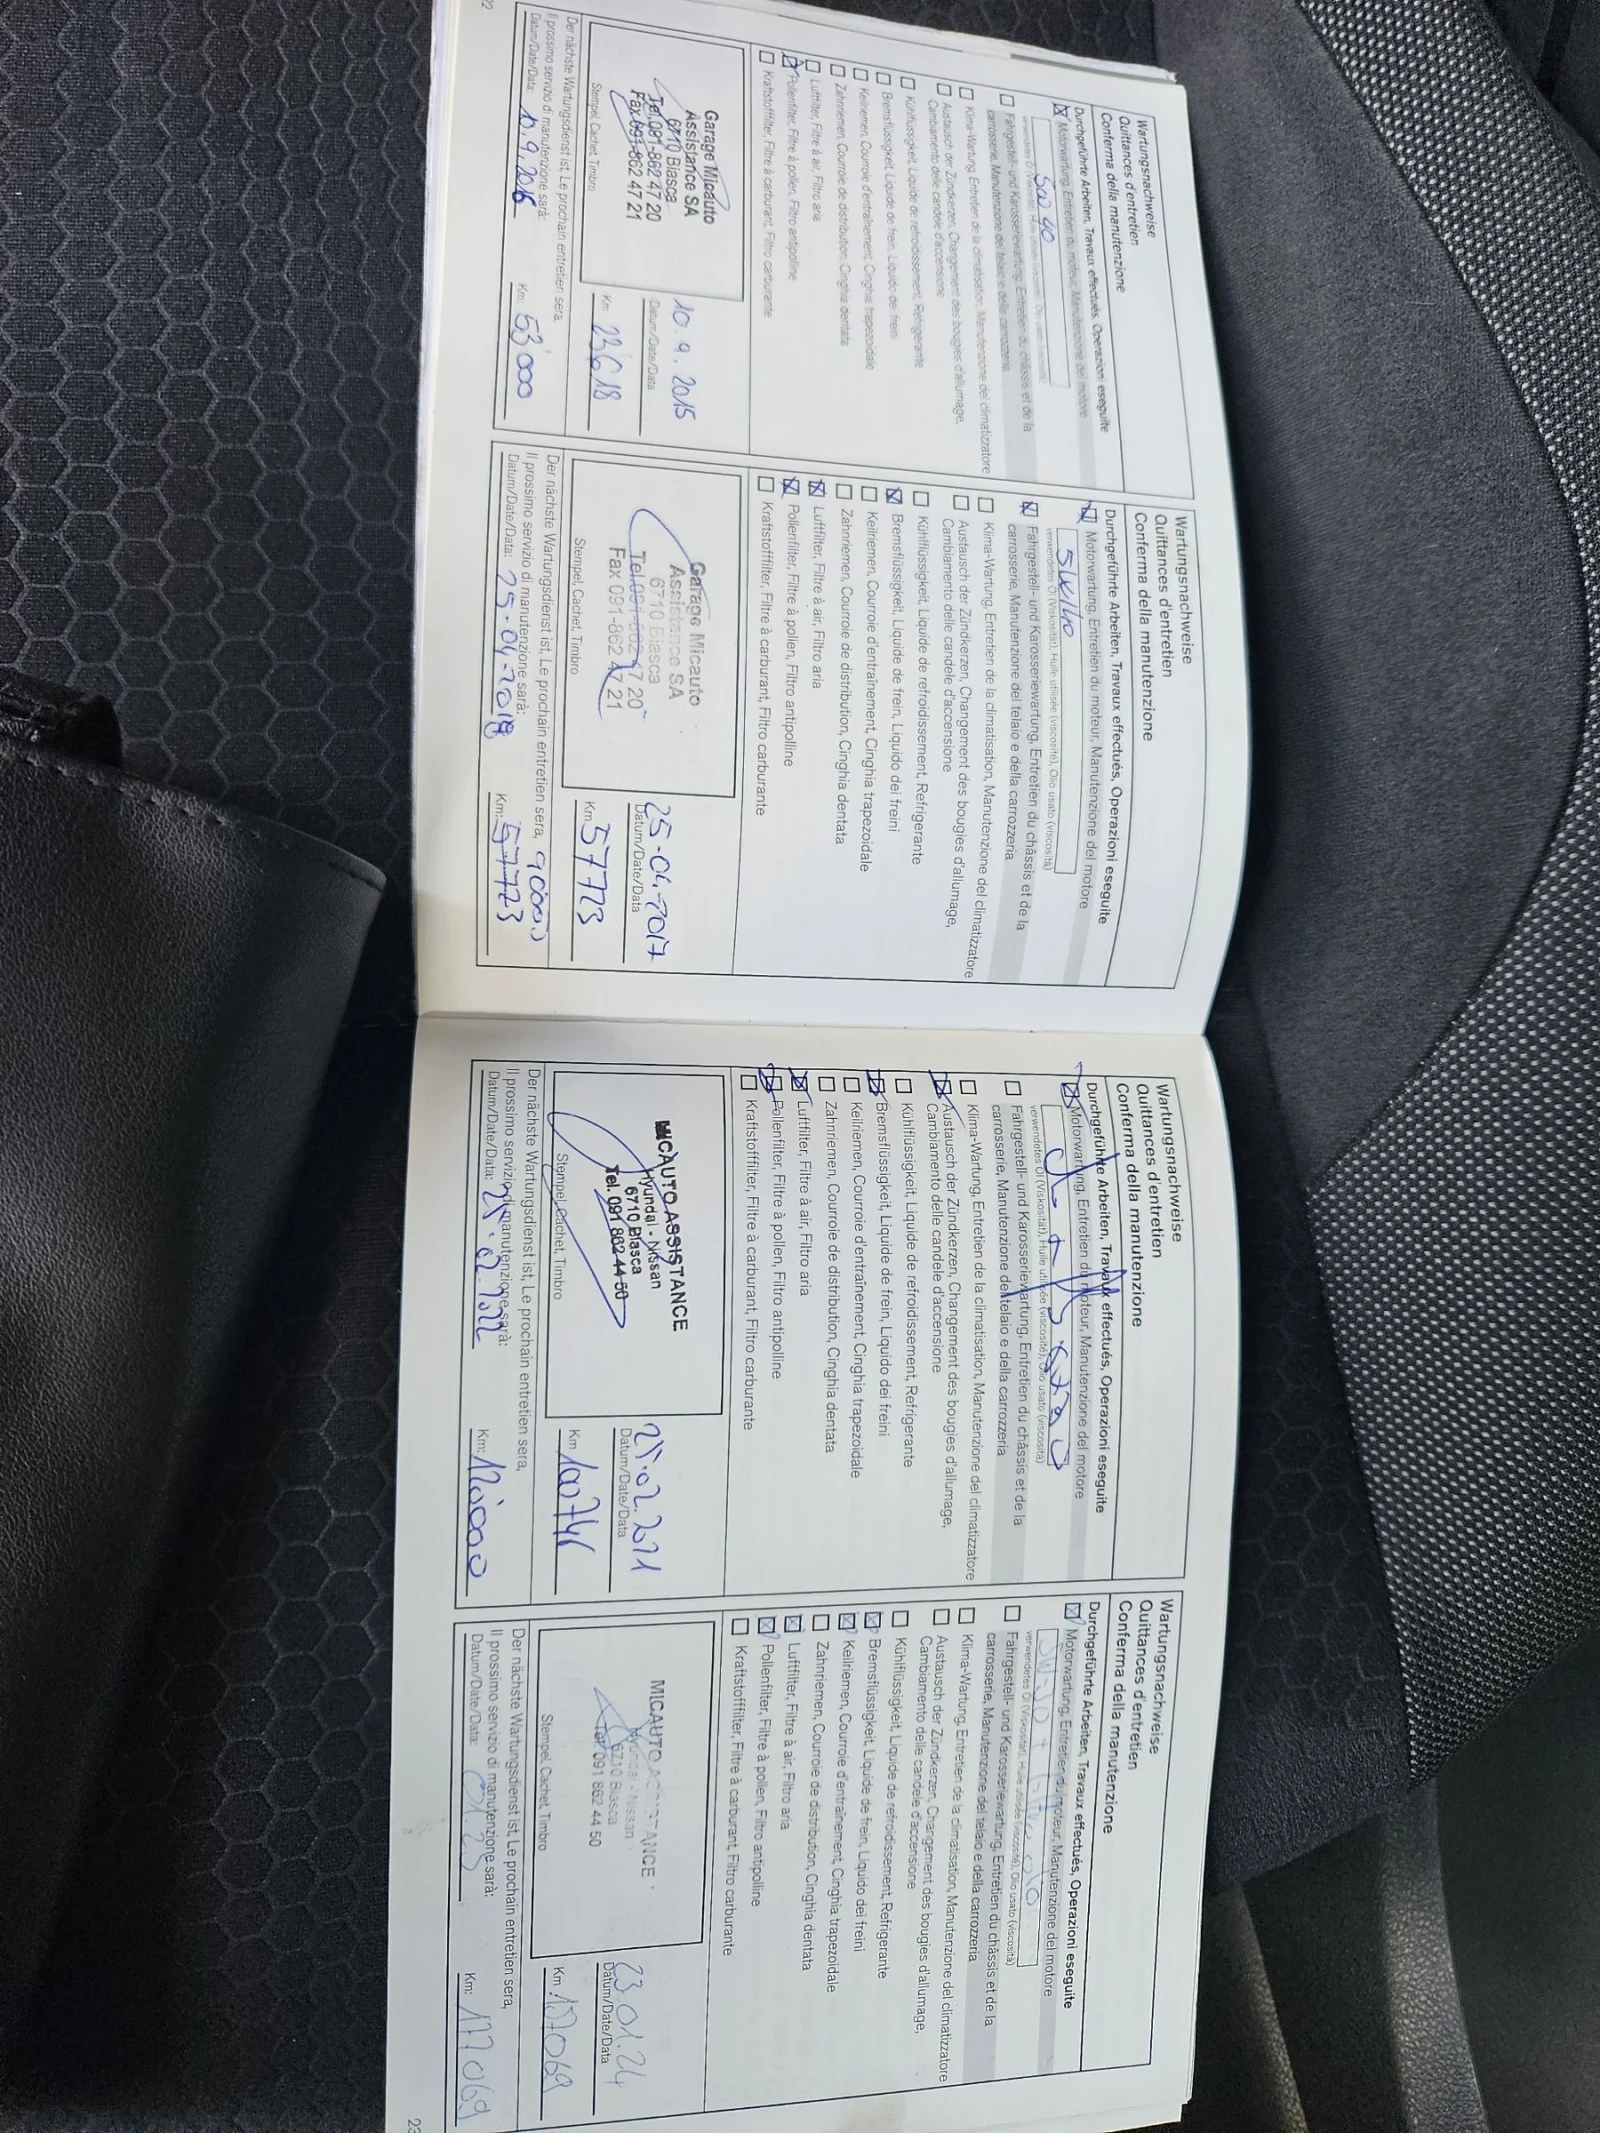 Wartungsnachweise
Quittances d'entretien
Conferma della manutenzione
Durchgeführte Arbeiten, Travaux effectués, Operazioni eseguite
Motorwartung, Entretien du moteur, Manutenzione del motore
5W40
Fahrgestell- und Karosseriewartung, Entretien du châssis et de la
carrosserie, Manutenzione del telaio e della carrozzeria
Klima-Wartung, Entretien de la climatisation, Manutenzione del climatizzatore
Austausch der Zündkerzen, Changement des bougies d'allumage,
Cambiamento delle candele d'accensione
Kühlflüssigkeit, Liquide de refroidissement, Refrigerante
Bremsflüssigkeit, Liquide de frein, Liquido dei freini
Keilriemen, Courroie d'entraînement, Cinghia trapezoidale
Zahnriemen, Courroie de distribution, Cinghia dentata
Luftfilter, Filtre à air, Filtro aria
Pollenfilter, Filtre à pollen, Filtro antipolline
Kraftstofffilter, Filtre à carburant, Filtro carburante
Garage Micauto
Assistance SA
6710 Biasca
Tel. 091-862 47 20
Fax 091-862 47 21
Stempel, Cachet, Timbro
10.9.2015
Datum/Date/Data
Km 23'618
Der nächste Wartungsdienst ist, Le prochain entretien sera,
Il prossimo servizio di manutenzione sarà:
Datum/Date/Data: 10.9.2016
Km: 53'000
22
Wartungsnachweise
Quittances d'entretien
Conferma della manutenzione
Durchgeführte Arbeiten, Travaux effectués, Operazioni eseguite
Motorwartung, Entretien du moteur, Manutenzione del motore
5W40
verwendetes Öl (Viskosität), Huile utilisée (viscosité), Olio usato (viscosità)
Fahrgestell- und Karosseriewartung, Entretien du châssis et de la
carrosserie, Manutenzione del telaio e della carrozzeria
Klima-Wartung, Entretien de la climatisation, Manutenzione del climatizzatore
Austausch der Zündkerzen, Changement des bougies d'allumage,
Cambiamento delle candele d'accensione
Kühlflüssigkeit, Liquide de refroidissement, Refrigerante
Bremsflüssigkeit, Liquide de frein, Liquido dei freini
Keilriemen, Courroie d'entraînement, Cinghia trapezoidale
Zahnriemen, Courroie de distribution, Cinghia dentata
Luftfilter, Filtre à air, Filtro aria
Pollenfilter, Filtre à pollen, Filtro antipolline
Kraftstofffilter, Filtre à carburant, Filtro carburante
Garage Micauto
Assistance SA
6710 Biasca
Tel.091-862 47 20
Fax 091-862 47 21
Stempel, Cachet, Timbro
25-04-2017
Datum/Date/Data
Km 57773
Der nächste Wartungsdienst ist, Le prochain entretien sera,
Il prossimo servizio di manutenzione sarà: 90000
Datum/Date/Data: 25-04-2018
Km: 57773
Wartungsnachweise
Quittances d'entretien
Conferma della manutenzione
Durchgeführte Arbeiten, Travaux effectués, Operazioni eseguite
Motorwartung, Entretien du moteur, Manutenzione del motore
verwendetes Öl (Viskosität), Huile utilisée (viscosité), Olio usato (viscosità)
Fahrgestell- und Karosseriewartung, Entretien du châssis et de la
carrosserie, Manutenzione del telaio e della carrozzeria
Klima-Wartung, Entretien de la climatisation, Manutenzione del climatizzatore
Austausch der Zündkerzen, Changement des bougies d'allumage,
Cambiamento delle candele d'accensione
Kühlflüssigkeit, Liquide de refroidissement, Refrigerante
Bremsflüssigkeit, Liquide de frein, Liquido dei freini
Keilriemen, Courroie d'entraînement, Cinghia trapezoidale
Zahnriemen, Courroie de distribution, Cinghia dentata
Luftfilter, Filtre à air, Filtro aria
Pollenfilter, Filtre à pollen, Filtro antipolline
Kraftstofffilter, Filtre à carburant, Filtro carburante
MICAUTO ASSISTANCE
Hyundai - Nissan
6710 Biasca
Tel. 091 862 44 50
Stempel, Cachet, Timbro
25.02.2021
Datum/Date/Data
Km 100746
Der nächste Wartungsdienst ist, Le prochain entretien sera,
Il prossimo servizio di manutenzione sarà:
Datum/Date/Data: 25.02.2022
Km: 120000
Wartungsnachweise
Quittances d'entretien
Conferma della manutenzione
Durchgeführte Arbeiten, Travaux effectués, Operazioni eseguite
Motorwartung, Entretien du moteur, Manutenzione del motore
5W-30 + filtro olio
verwendetes Öl (Viskosität), Huile utilisée (viscosité), Olio usato (viscosità)
Fahrgestell- und Karosseriewartung, Entretien du châssis et de la
carrosserie, Manutenzione del telaio e della carrozzeria
Klima-Wartung, Entretien de la climatisation, Manutenzione del climatizzatore
Austausch der Zündkerzen, Changement des bougies d'allumage,
Cambiamento delle candele d'accensione
Kühlflüssigkeit, Liquide de refroidissement, Refrigerante
Bremsflüssigkeit, Liquide de frein, Liquido dei freini
Keilriemen, Courroie d'entraînement, Cinghia trapezoidale
Zahnriemen, Courroie de distribution, Cinghia dentata
Luftfilter, Filtre à air, Filtro aria
Pollenfilter, Filtre à pollen, Filtro antipolline
Kraftstofffilter, Filtre à carburant, Filtro carburante
MICAUTO ASSISTANCE
Hyundai - Nissan
6710 Biasca
Tel. 091 862 44 50
Stempel, Cachet, Timbro
23.01.24
Datum/Date/Data
Km 157069
Der nächste Wartungsdienst ist, Le prochain entretien sera,
Il prossimo servizio di manutenzione sarà:
Datum/Date/Data: 01.25
Km: 177069
23